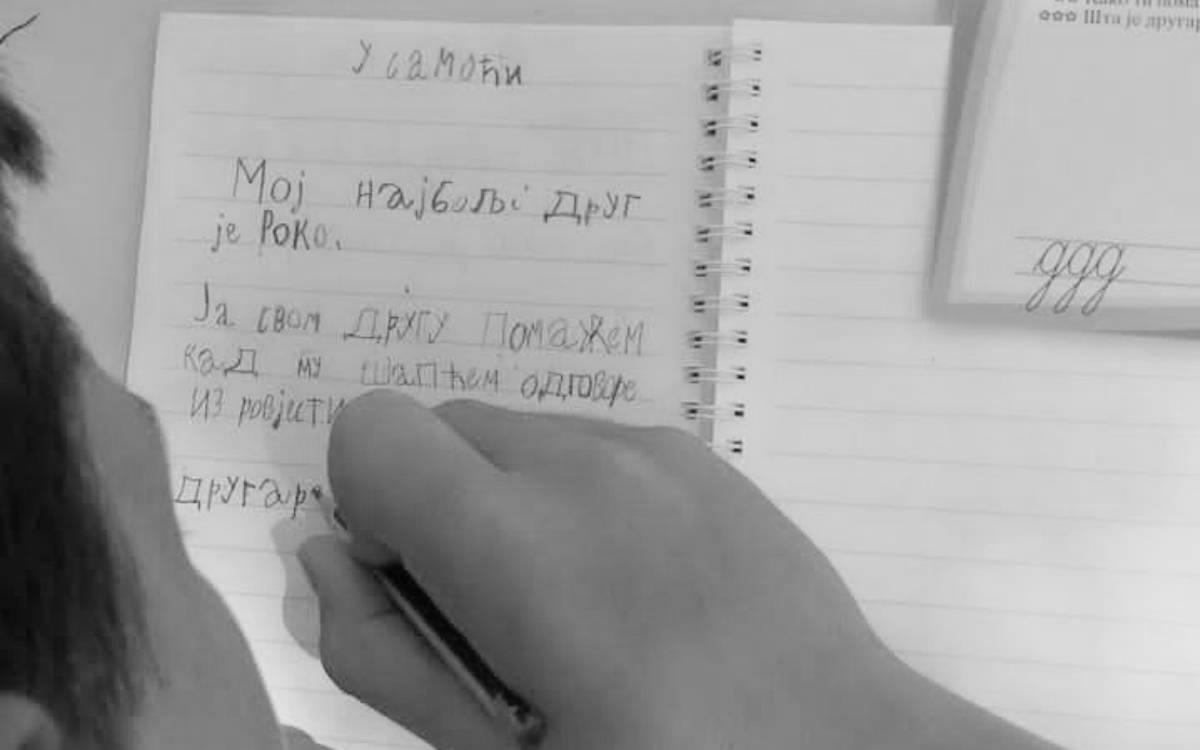 У самоћи
Мој најбољи друг
је Роко.
Ја свом другу помажем
кад му шапћем одговоре
из ровјести
другар
Како ти пома
✩✩✩ Шта је другар
ggg